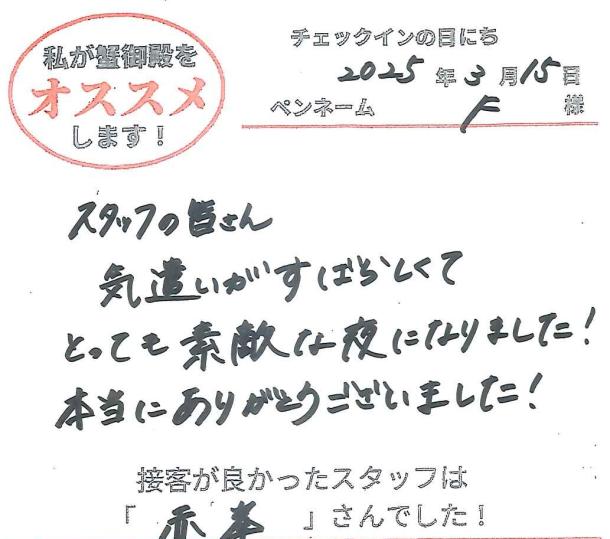 私が蟹御殿を
オススメ
します！
チェックインの日にち
2025年3月15日
ペンネーム F 様
スタッフの皆さん
気遣いがすばらしくて
とっても素敵な夜になりました！
本当にありがとうございました！
接客が良かったスタッフは
「赤峯」さんでした！